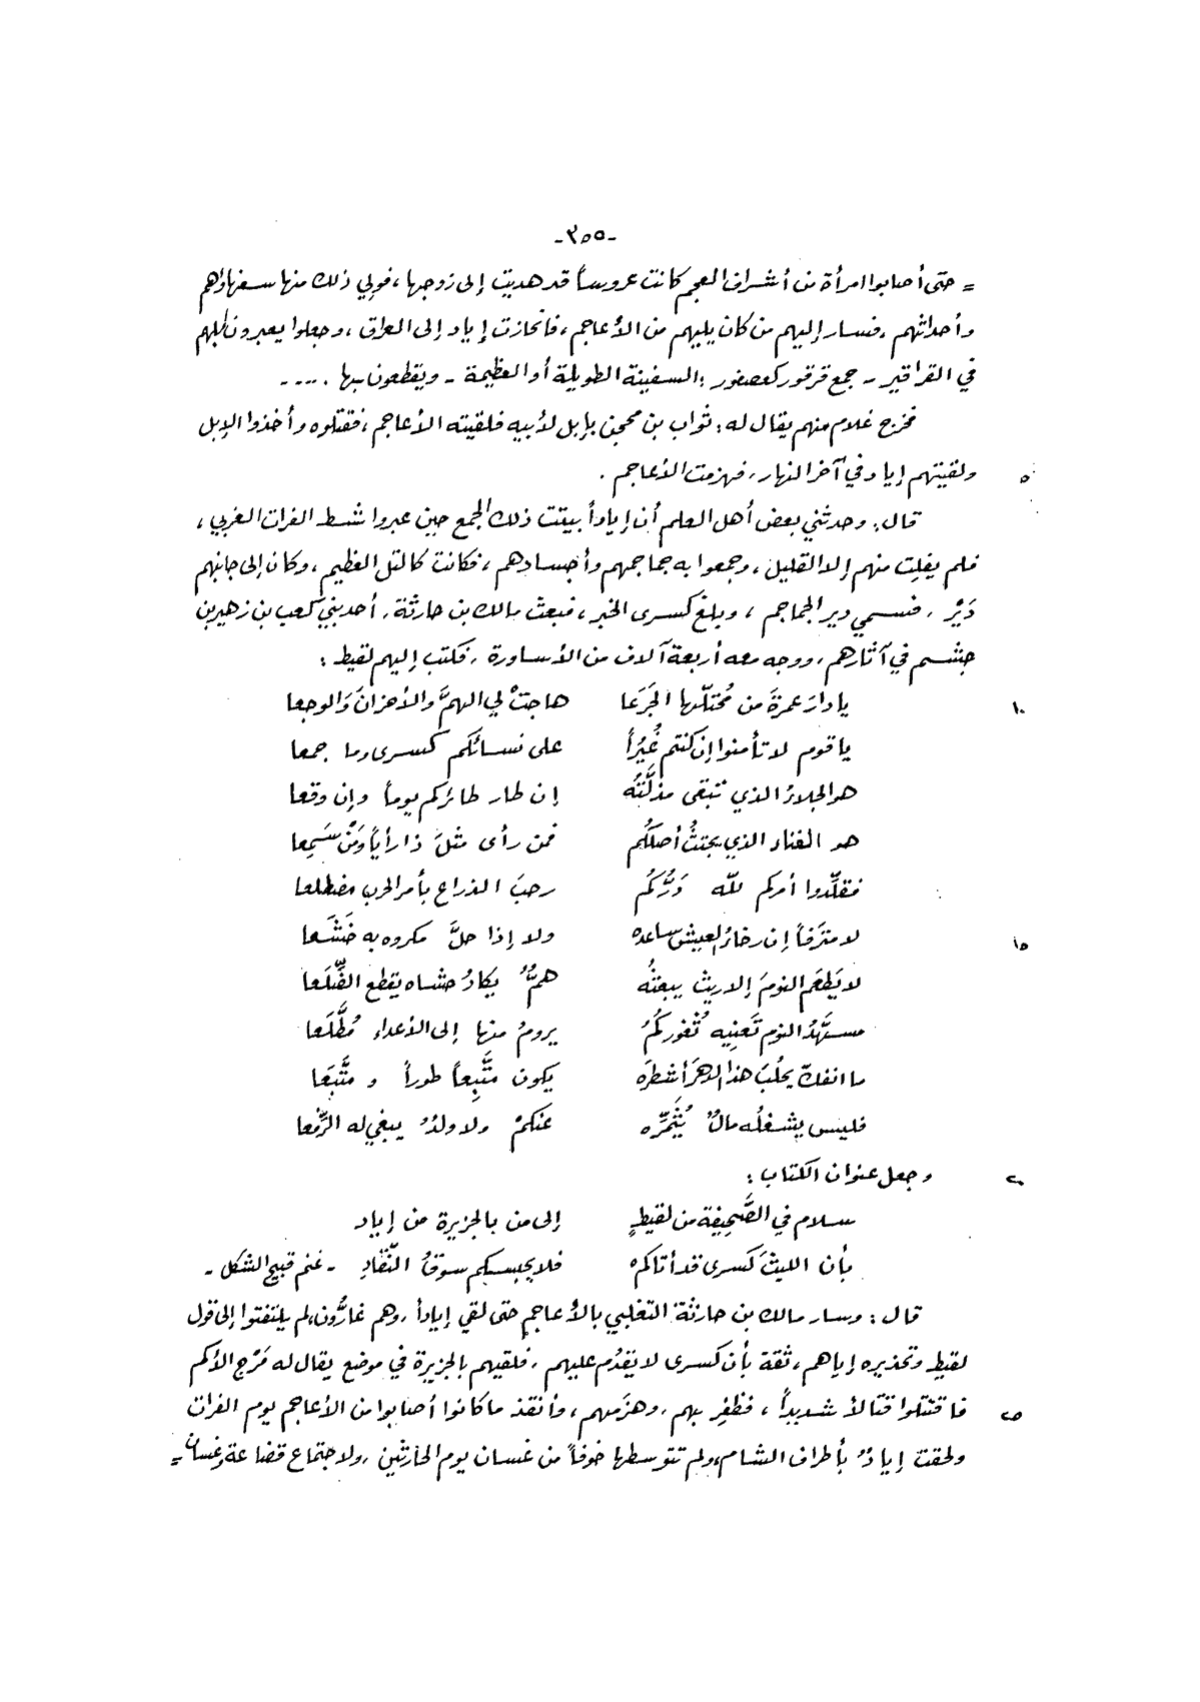 -٣٥٥-
= حتى أصابوا امرأة من أشراف العجم كانت عروساً قد هديت إلى زوجها، فولي ذلك منها سفهاؤهم
وأحداثهم، فسار إليهم من كان يليهم من الأعاجم، فانحازت إياد إلى العراق، وجعلوا يعبرون إبلهم
في القراقير - جمع قرقور كعصفور: السفينة الطويلة أو العظيمة - ويقطعون بها . ...
فخرج غلام منهم يقال له: ثواب بن محجن بإبل لأبيه فلقيته الأعاجم، فقتلوه وأخذوا الإبل
ولقيتهم إياد في آخر النهار، فهزمت الأعاجم . ٥
قال: وحدثني بعض أهل العلم أن إياداً بيتت ذلك الجمع حين عبروا شط الفرات الغربي،
فلم يفلت منهم إلا القليل، وجمعوا به جماجمهم وأجسادهم، فكانت كالتل العظيم، وكان إلى جانبهم
دَيْرٌ، فسمي دير الجماجم، وبلغ كسرى الخبر، فبعث مالك بن حارثة، أحد بني كعب بن زهير بن
جشم في آثارهم، ووجه معه أربعة آلاف من الأساورة، فكتب إليهم لقيط:
يا دارَ عمرةَ من مُحتلّها الجَرَعا هاجتْ لي الهمَّ والأحزانَ والوجعا ١٠
يا قوم لا تأمنوا إن كنتم غُيُراً على نسائكم كسرى وما جمعا
هو الجلاءُ الذي تبقى مذلَّتُه إن طار طائركم يوماً وإن وقعا
هو الفناء الذي يجتثُّ أصلكُم فمن رأى مثلَ ذا رأياً ومَنْ سَمِعا
فقلِّدوا أمركم لله دَرُّكُم رحبَ الذراع بأمر الحرب مضطلعا
لا مترَفاً إن رخاءُ العيش ساعده ولا إذا حلَّ مكروه به خَشَعا ١٥
لا يَطعَم النومَ إلا ريثَ يبعثُه همٌّ يكادُ حشاه يقطع الضِّلَعا
مسهَّدُ النوم تَعنِيه ثُغوركُمُ يرومُ منها إلى الأعداءِ مُطَّلَعا
ما انفكّ يحلُبُ هذا الدهرَ أشطرَه يكون متَّبِعاً طوراً و متَّبَعا
فليس يشغلُه مالٌ يُثَمِّرُه عنكمْ ولا ولدٌ يبغي له الرِّفعا
وجعل عنوان الكتاب: ٢٠
سلام في الصَّحِيفة من لقيطٍ إلى من بالجزيرة من إياد
بأن الليثَ كسرى قد أتاكم فلا يحبسكم سوقُ النَّقادِ - غنم قبيح الشكل -
قال: وسار مالك بن حارثة التغلبي بالأعاجم حتى لقي إياداً، وهم غارُّون، لم يلتفتوا إلى قول
لقيط وتحذيره إياهم، ثقة بأن كسرى لا يقدُم عليهم، فلقيهم بالجزيرة في موضع يقال له مَرْج الأكم
فاقتتلوا قتالاً شديداً، فظفِر بهم، وهزمهم، وأنقذ ما كانوا أصابوا من الأعاجم يوم الفرات ٢٥
ولحقت إيادٌ بأطراف الشام، ولم تتوسطها خوفاً من غسان يوم الحارثين، ولاجتماع قضاعة وغسان =